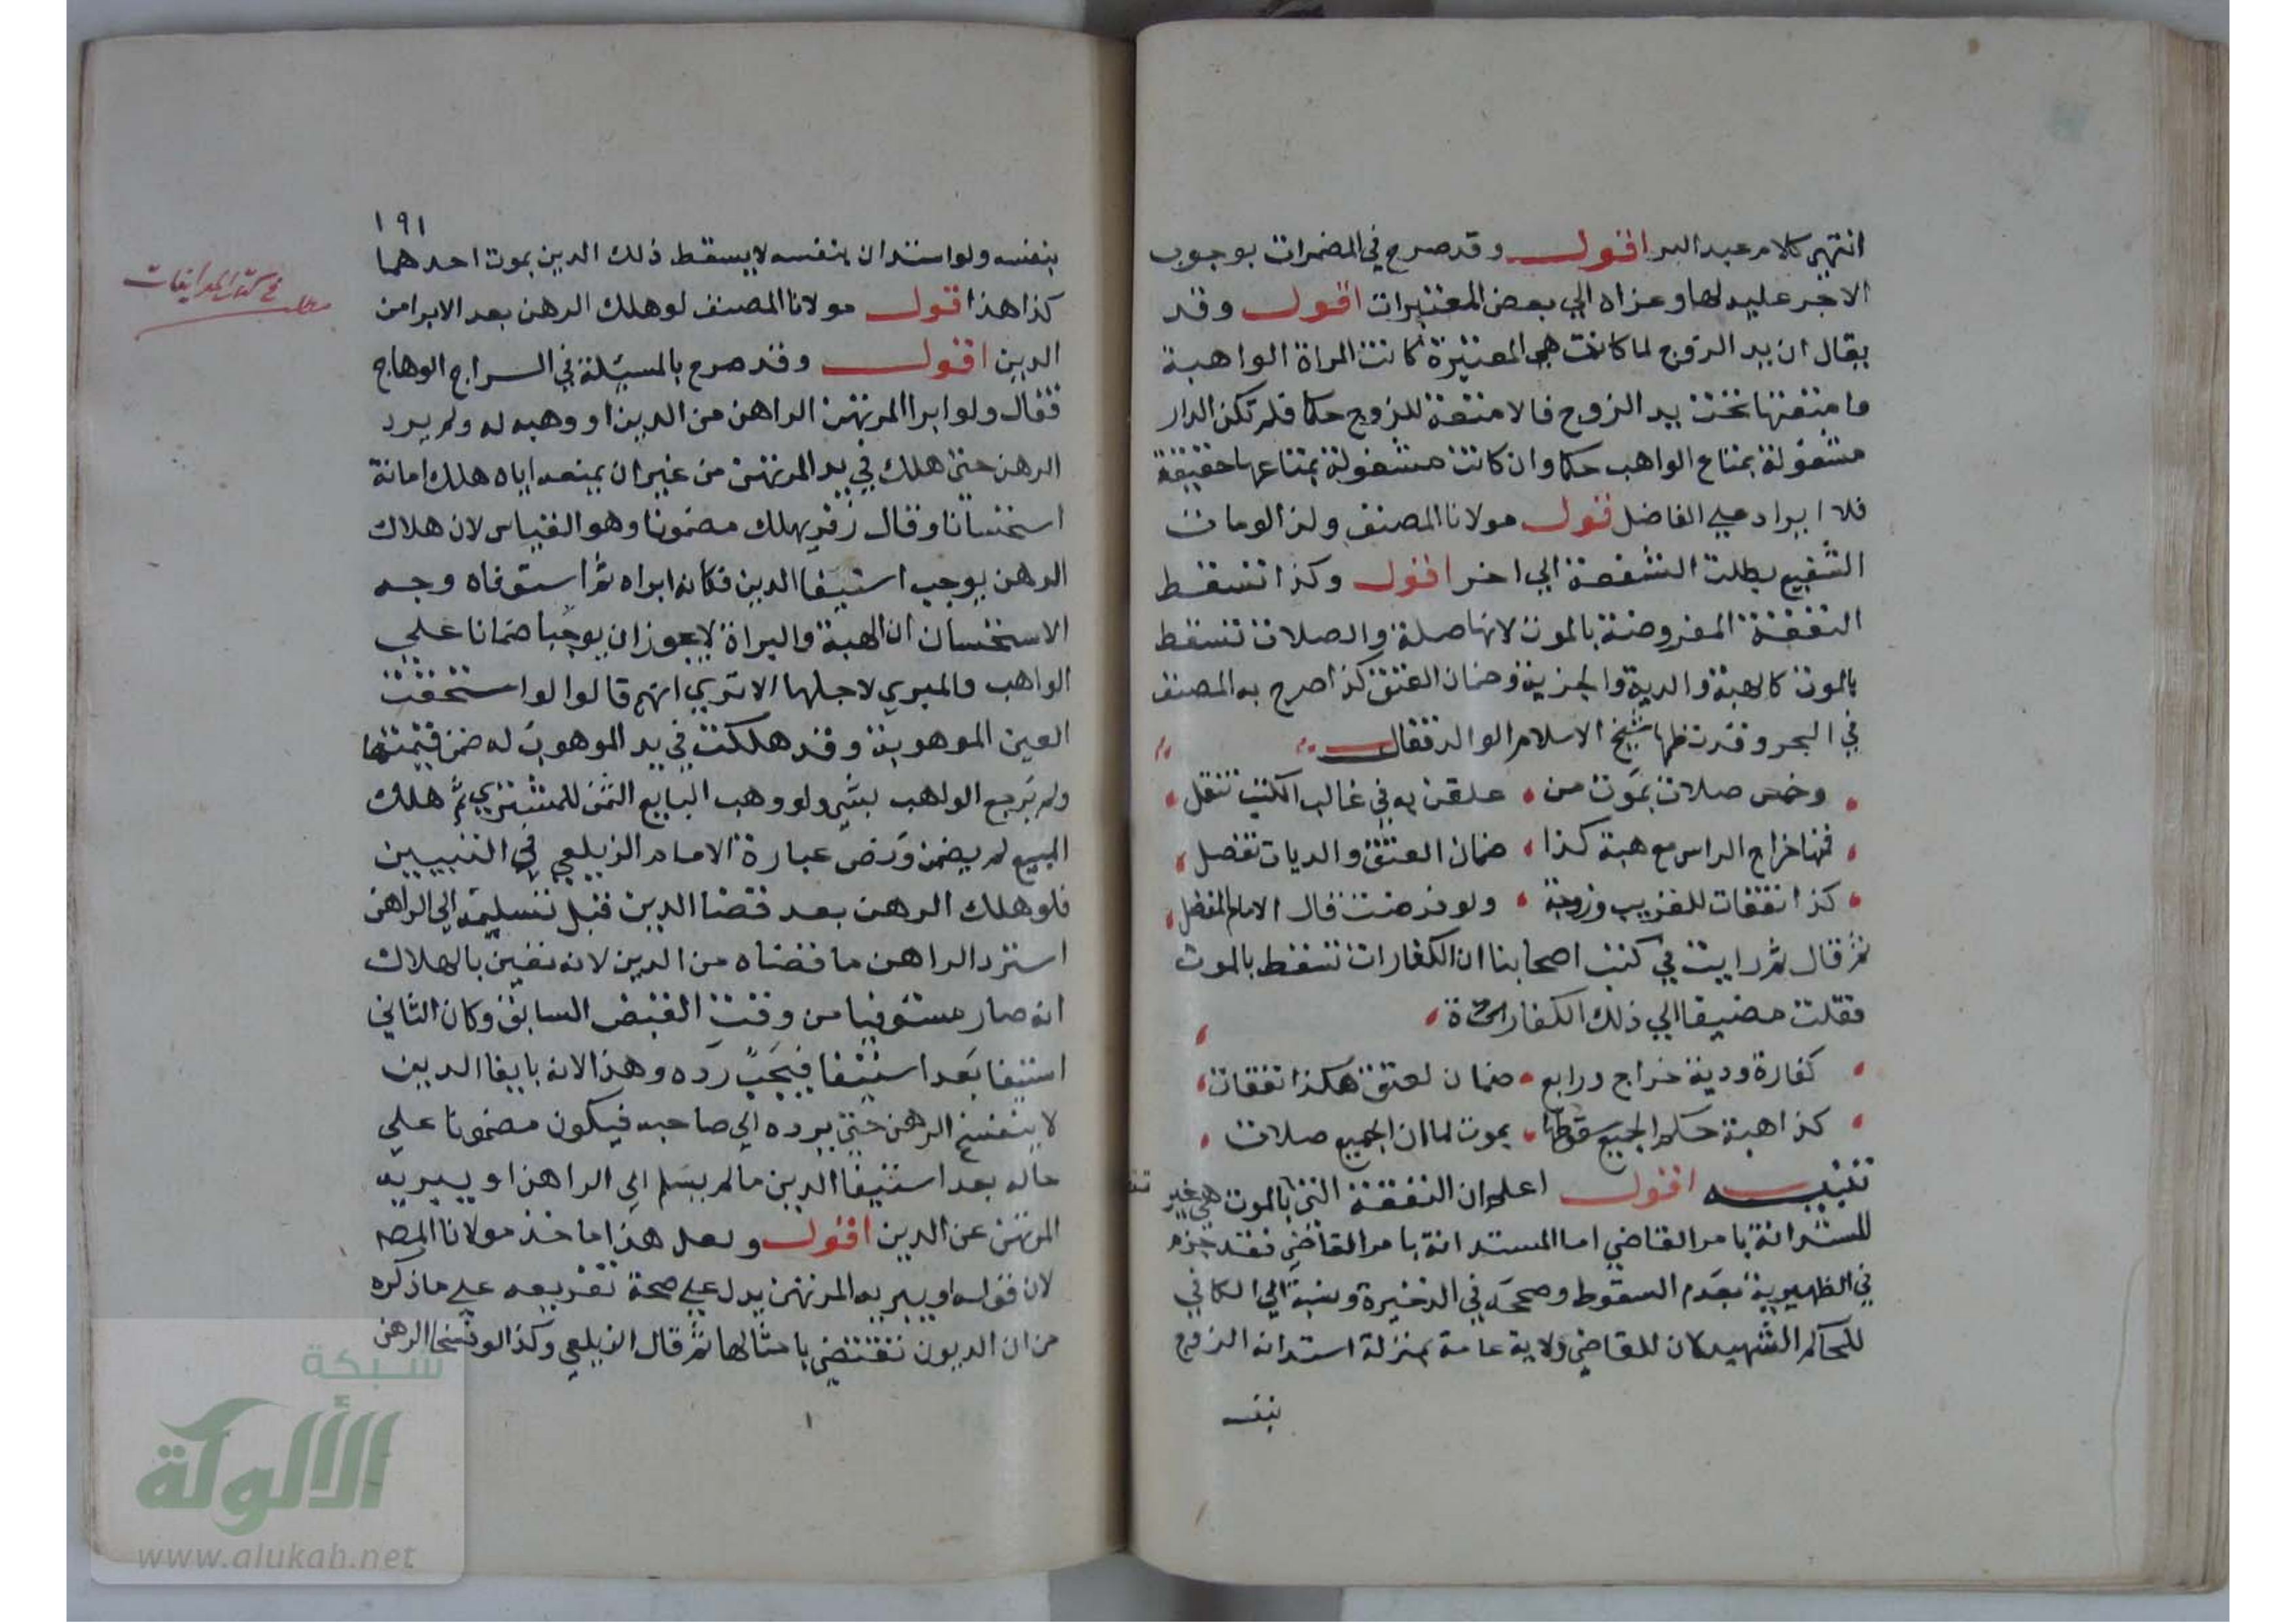 انتهي كلام عبد البر اقول وقد صرح في المضمرات بوجوب
الاجر عليه لها وعزاه الي بعض المعتبرات اقول وقد
يقال ان يد الزوج لما كانت هي المعتبرة كانت المراة الواهبة
وامتعتها تحت يد الزوج فالامتعة للزوج حكما فلم تكن الدار
مشغولة بمتاع الواهب حكما وان كانت مشغولة بمتاعها حقيقة
فلا ايراد علي الفاضل قول مولانا المصنف ولذا لو مات
الشفيع بطلت الشفعة الي اخر اقول وكذا تسقط
النفقة المفروضة بالموت لانها صلة والصلات تسقط
بالموت كالهبة والدية والجزية وضمان العتق كذا صرح به المصنف
في البحر وقد نظمها شيخ الاسلام الوالد فقال
وخمس صلات بموت من علقن به في غالب الكتب تنقل
فمنها خراج الراس مع هبة كذا ضمان العتق والديات تفصل
كذا نفقات للقريب وزوجة ولو فرضت قال الامام المفضل
ثم قال ثم رايت في كتب اصحابنا ان الكفارات تسقط بالموت
فقلت مضيفا الي ذلك الكفارة
كفارة ودية خراج ورابع ضمان لعتق هكذا نفقات
كذا هبة حكم الجميع سقوطها بموت لما ان الجميع صلات
تنبيه اقول اعلم ان النفقة التي بالموت هي غير
المستدانة بامر القاضي اما المستدانة بامر القاضي فقد جزم
في الظهيرية بعدم السقوط وصححه في الذخيرة ونسبه الي الكافي
للحاكم الشهيد لان للقاضي ولاية عامة بمنزلة استدانة الزوج
بنفسه
١٩١
بنفسه ولو استدان بنفسه لا يسقط ذلك الدين بموت احدهما
كذا هذا قول مولانا المصنف لو هلك الرهن بعد الابرا من
الدين اقول وقد صرح بالمسيلة في السراج الوهاج
فقال ولو ابرا المرتهن الراهن من الدين او وهبه له ولم يرد
الرهن حتى هلك في يد المرتهن من غير ان يمنعه اياه هلك امانة
استحسانا وقال زفر يهلك مضمونا وهو القياس لان هلاك
الرهن يوجب استيفا الدين فكانه ابراه ثم استوفاه وجه
الاستحسان ان الهبة والبراة لا يجوز ان يوجبا ضمانا علي
الواهب والمبري لاجلها الا تري انهم قالوا لو استحقت
العين الموهوبة وقد هلكت في يد الموهوب له ضمن قيمتها
ولم يرجع الواهب بشي ولو وهب البايع الثمن للمشتري ثم هلك
المبيع لم يضمن ونص عبارة الامام الزيلعي في التبيين
فلو هلك الرهن بعد قضا الدين قبل تسليمه الي الراهن
استرد الراهن ما قضاه من الدين لانه تعين بالهلاك
انه صار مستوفيا من وقت القبض السابق وكان الثاني
استيفا بعد استيفا فيجب رده وهذا لانه بايفا الدين
لا ينفسخ الرهن حتي يرده الي صاحبه فيكون مضمونا علي
حاله بعد استيفا الدين ما لم يسلم الي الراهن او يبريه
المرتهن عن الدين اقول ولعل هذا ماخذ مولانا المصـ
لان قوله او يبريه المرتهن يدل علي صحة تفريعه علي ما ذكره
من ان الديون تقتضي بامثالها ثم قال الزيلعي وكذا لو تفسخا الرهن
مطلب في كتاب المداينات
شبكة
الألوكة
www.alukah.net